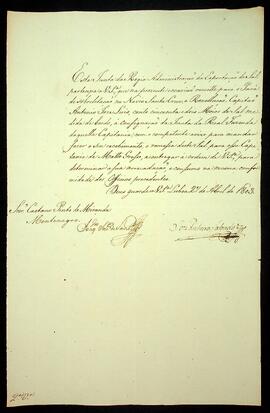 Esta Junta da Regia Administração da Exportação do Sal
participa a V. S.ª, que na presente occasião remette para o Pará
no Navio Santa Cruz, e Capitaõ
Antonio Jozé cento cincoenta e dois Moios de Sal me-
dida de Cuido, á consignação da Junta da Real Fazenda
daquella Capitania, com o competente avizo para mandar
fazer o seu recebimento, e remessa deste Sal para essa Capi-
tania de Matto Grosso, a entregar á ordem de V. S.ª, para
determinar a sua arrecadação, e consumo na mesma confor-
midade dos Officios precedentes.
Deos guarde a V. S.ª Lisboa 27 de Abril de 1803
Snr. Caetano Pinto de Miranda
Montenegro